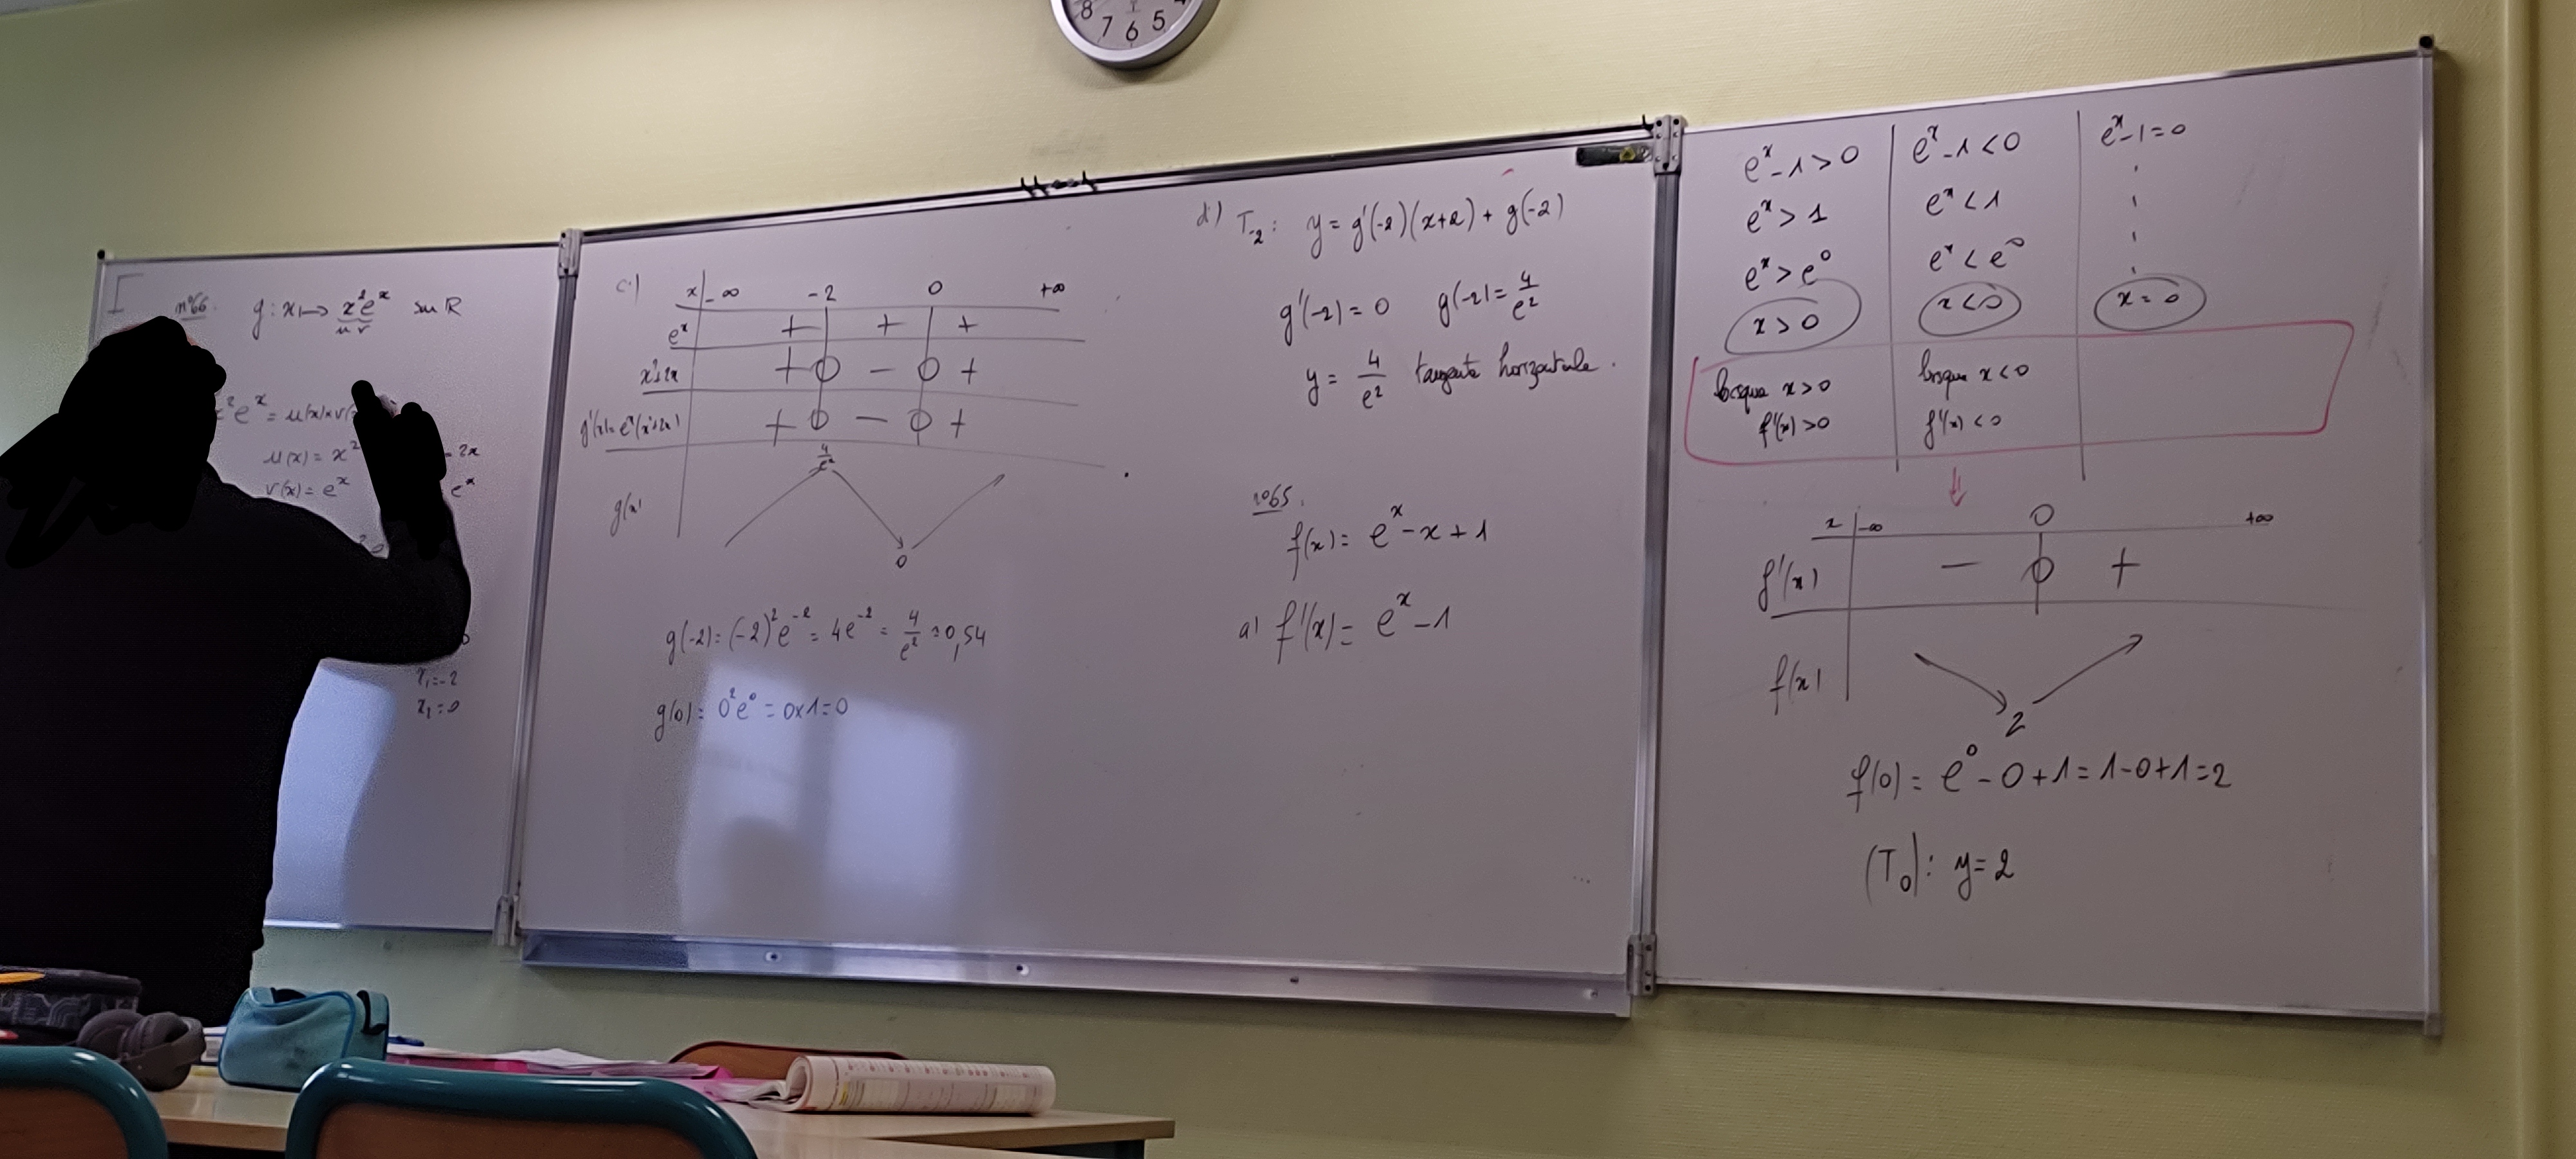 8 7 6 5
n°66. g : x ⟼ x²e^x sur ℝ
u v
²e^x = u(x)×v(
u(x) = x² = 2x
v(x) = e^x e^x
x₁ = -2
x₂ = 0
c) x | -∞ -2 0 +∞
e^x + + +
x²+2x + 0 - 0 +
g'(x) = e^x(x²+2x) + 0 - 0 +
4/e²
g(x)
0
g(-2) = (-2)²e^-2 = 4e^-2 = 4/e² ≈ 0,54
g(0) = 0²e^0 = 0×1 = 0
d) T₋₂ : y = g'(-2)(x+2) + g(-2)
g'(-2) = 0 g(-2) = 4/e²
y = 4/e² tangente horizontale.
n°65.
f(x) = e^x - x + 1
a) f'(x) = e^x - 1
e^x - 1 > 0 | e^x - 1 < 0 | e^x - 1 = 0
e^x > 1 | e^x < 1
e^x > e^0 | e^x < e^0
x > 0 | x < 0 | x = 0
lorsque x > 0 | lorsque x < 0
f'(x) > 0 | f'(x) < 0
x | -∞ 0 +∞
f'(x) - 0 +
f(x)
2
f(0) = e^0 - 0 + 1 = 1 - 0 + 1 = 2
(T₀) : y = 2